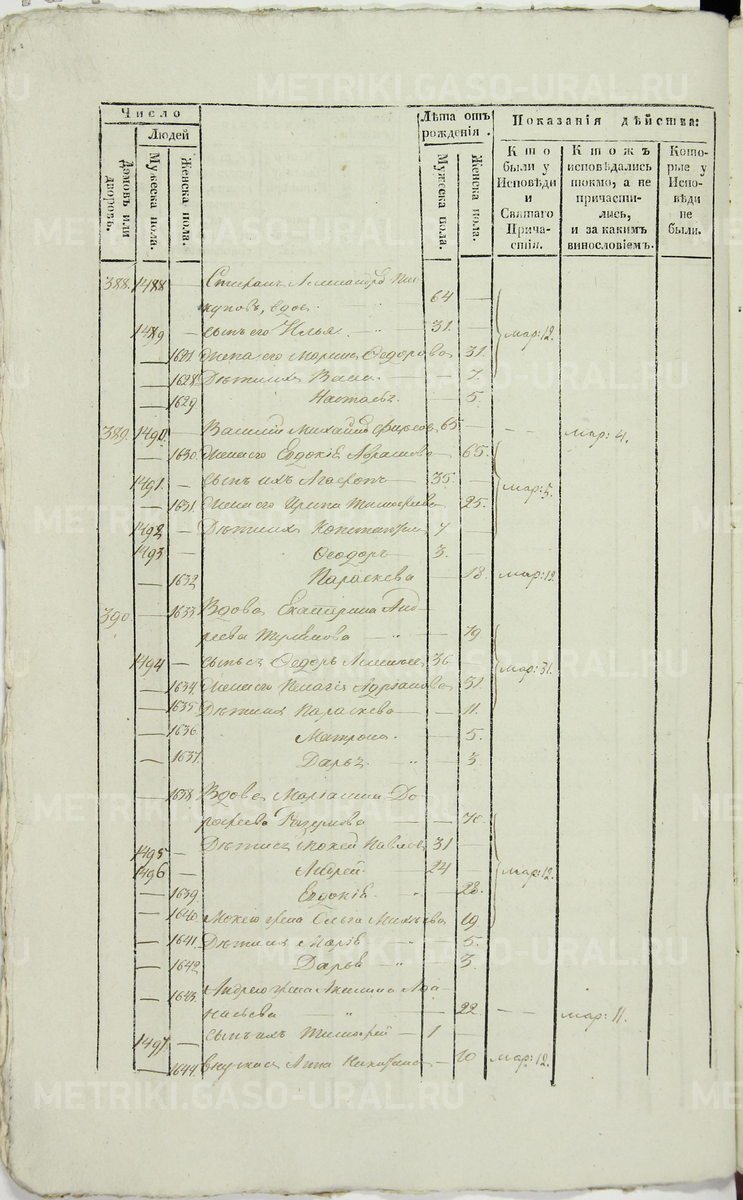 Число
Людей
Домовъ или дворовъ.
Мужеска пола.
Женска пола.
Лѣта отъ рожденія.
Мужеска пола.
Женска пола.
Показанія дѣйства:
Кто были у Исповѣди и Святаго Причастія.
Кто жъ исповѣдались токмо, а не причастились, и за какимъ винословіемъ.
Которые у Исповѣди не были.
388. 1488 — Стефанъ
вдов 64 —
1489 — сынъ его Илья 31. — мар: 12.
— 1627 жена его Марина Ѳедорова 31.
— 1628 Дѣти ихъ Васса — 7.
— 1629 Настасья — 5.
389. 1490 — Василій Михайлов 65 — — — мар: 4.
— 1630 жена его Евдокія Аврамова — 65.
1491. — сынъ ихъ Агафонъ 35 — мар: 5.
— 1631. жена его Ирина Тимофеева — 25.
1492 — Дѣти ихъ Константин 7 —
1493 — Ѳеодоръ 3. —
— 1632 Параскева — 18. мар: 12.
390. — 1633 Вдова Екатерина Анд
реева — 79
1494 — сынъ ея Ѳедоръ 36 — мар: 31.
— 1634 жена его Пелагія Адріанова 31.
— 1635 Дѣти ихъ Параскева — 11.
— 1636 Матрона — 5.
— 1637. Дарья — 3.
— 1638 Вдова До
рофеева Разумова — 70.
1495 — Дѣти ея Мокей Павлов 31 —
1496 — Андрей 24 — мар: 12.
— 1639 Евдокія — 28.
— 1640 Мокею жена Ольга 19
— 1641. Дѣти ихъ Марія — 5.
— 1642 Дарья — 3.
— 1643 Андрею жена Акилина Афа
насьева — 22 — — мар: 11.
1497 — сынъ ихъ Тимофей 1 —
— 1644 внучка Анна — 10 мар: 12.
METRIKI.GASO-URAL.RU